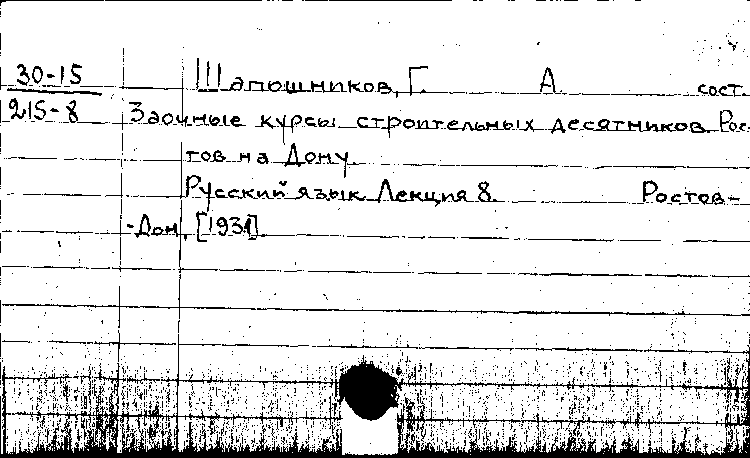 30-15 Шапошников, Г. А. сост.
215-8 Заочные курсы строительных десятников. Рос-
тов на Дону.
Русский язык. Лекция 8. Ростов-
-Дон, [1931].